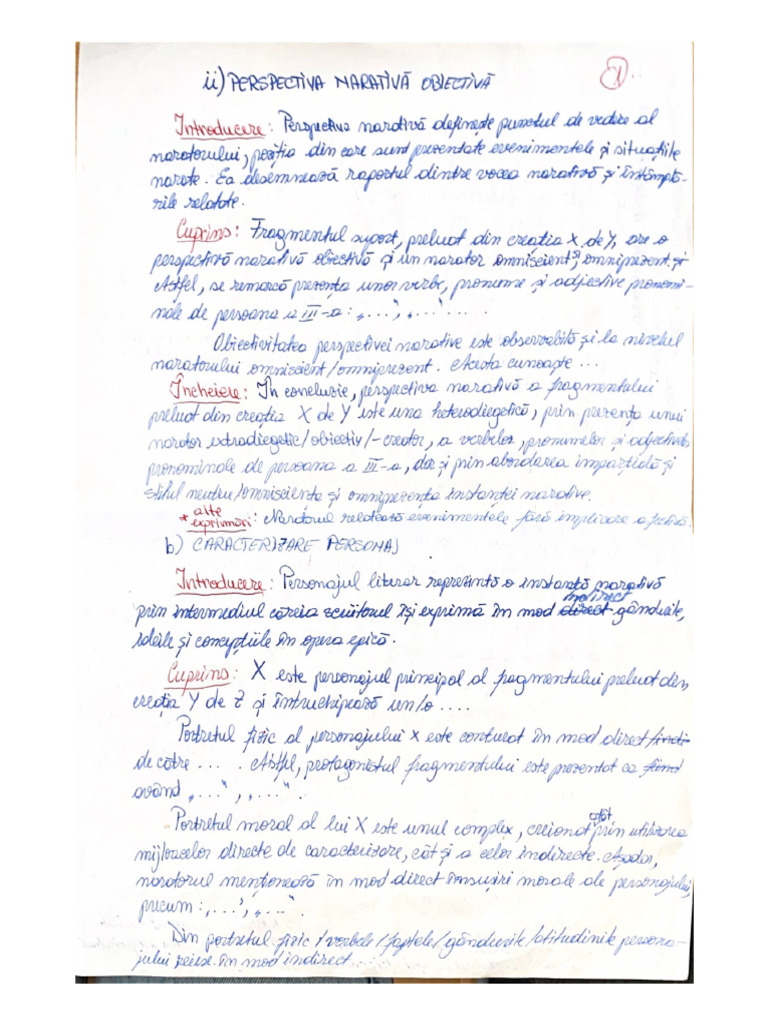 ii) PERSPECTIVA NARATIVĂ OBIECTIVĂ
1
Introducere: Perspectiva narativă definește punctul de vedere al
naratorului, poziția din care sunt prezentate evenimentele și situațiile
narate. Ea desemnează raportul dintre vocea narativă și întâmplă-
rile relatate.
Cuprins: Fragmentul suport, preluat din creația X de Y, are o
perspectivă narativă obiectivă și un narator omniscient și omniprezent.
Astfel, se remarcă prezența unor verbe, pronume și adjective pronomi-
nale de persoana a III-a: „...”, „...” ...
Obiectivitatea perspectivei narative este observabilă și la nivelul
naratorului omniscient/omniprezent. Acesta cunoaște ...
Încheiere: În concluzie, perspectiva narativă a fragmentului
preluat din creația X de Y este una heterodiegetică, prin prezența unui
narator extradiegetic/obiectiv/-creator, a verbelor, pronumelor și adjectivelor
pronominale de persoana a III-a, dar și prin abordarea imparțială și
stilul neutru/omnisciența și omniprezența instanței narative.
* alte exprimări: Naratorul relatează evenimentele fără implicare afectivă.
b) CARACTERIZARE PERSONAJ
Introducere: Personajul literar reprezintă o instanță narativă
prin intermediul căreia scriitorul își exprimă în mod direct indirect gândurile,
ideile și concepțiile în opera epică.
Cuprins: X este personajul principal al fragmentului preluat din
creația Y de Z și întruchipează un/o ....
Portretul fizic al personajului X este conturat în mod direct
de către ... . Astfel, protagonistul fragmentului este prezentat ca fiind
având „...”, „...”.
Portretul moral al lui X este unul complex, creionat atât prin utilizarea
mijloacelor directe de caracterizare, cât și a celor indirecte. Așadar,
naratorul menționează în mod direct însușiri morale ale personajului,
precum: „...”, „...”.
Din portretul fizic/vorbele/faptele/gândurile/atitudinile persona-
jului reiese în mod indirect